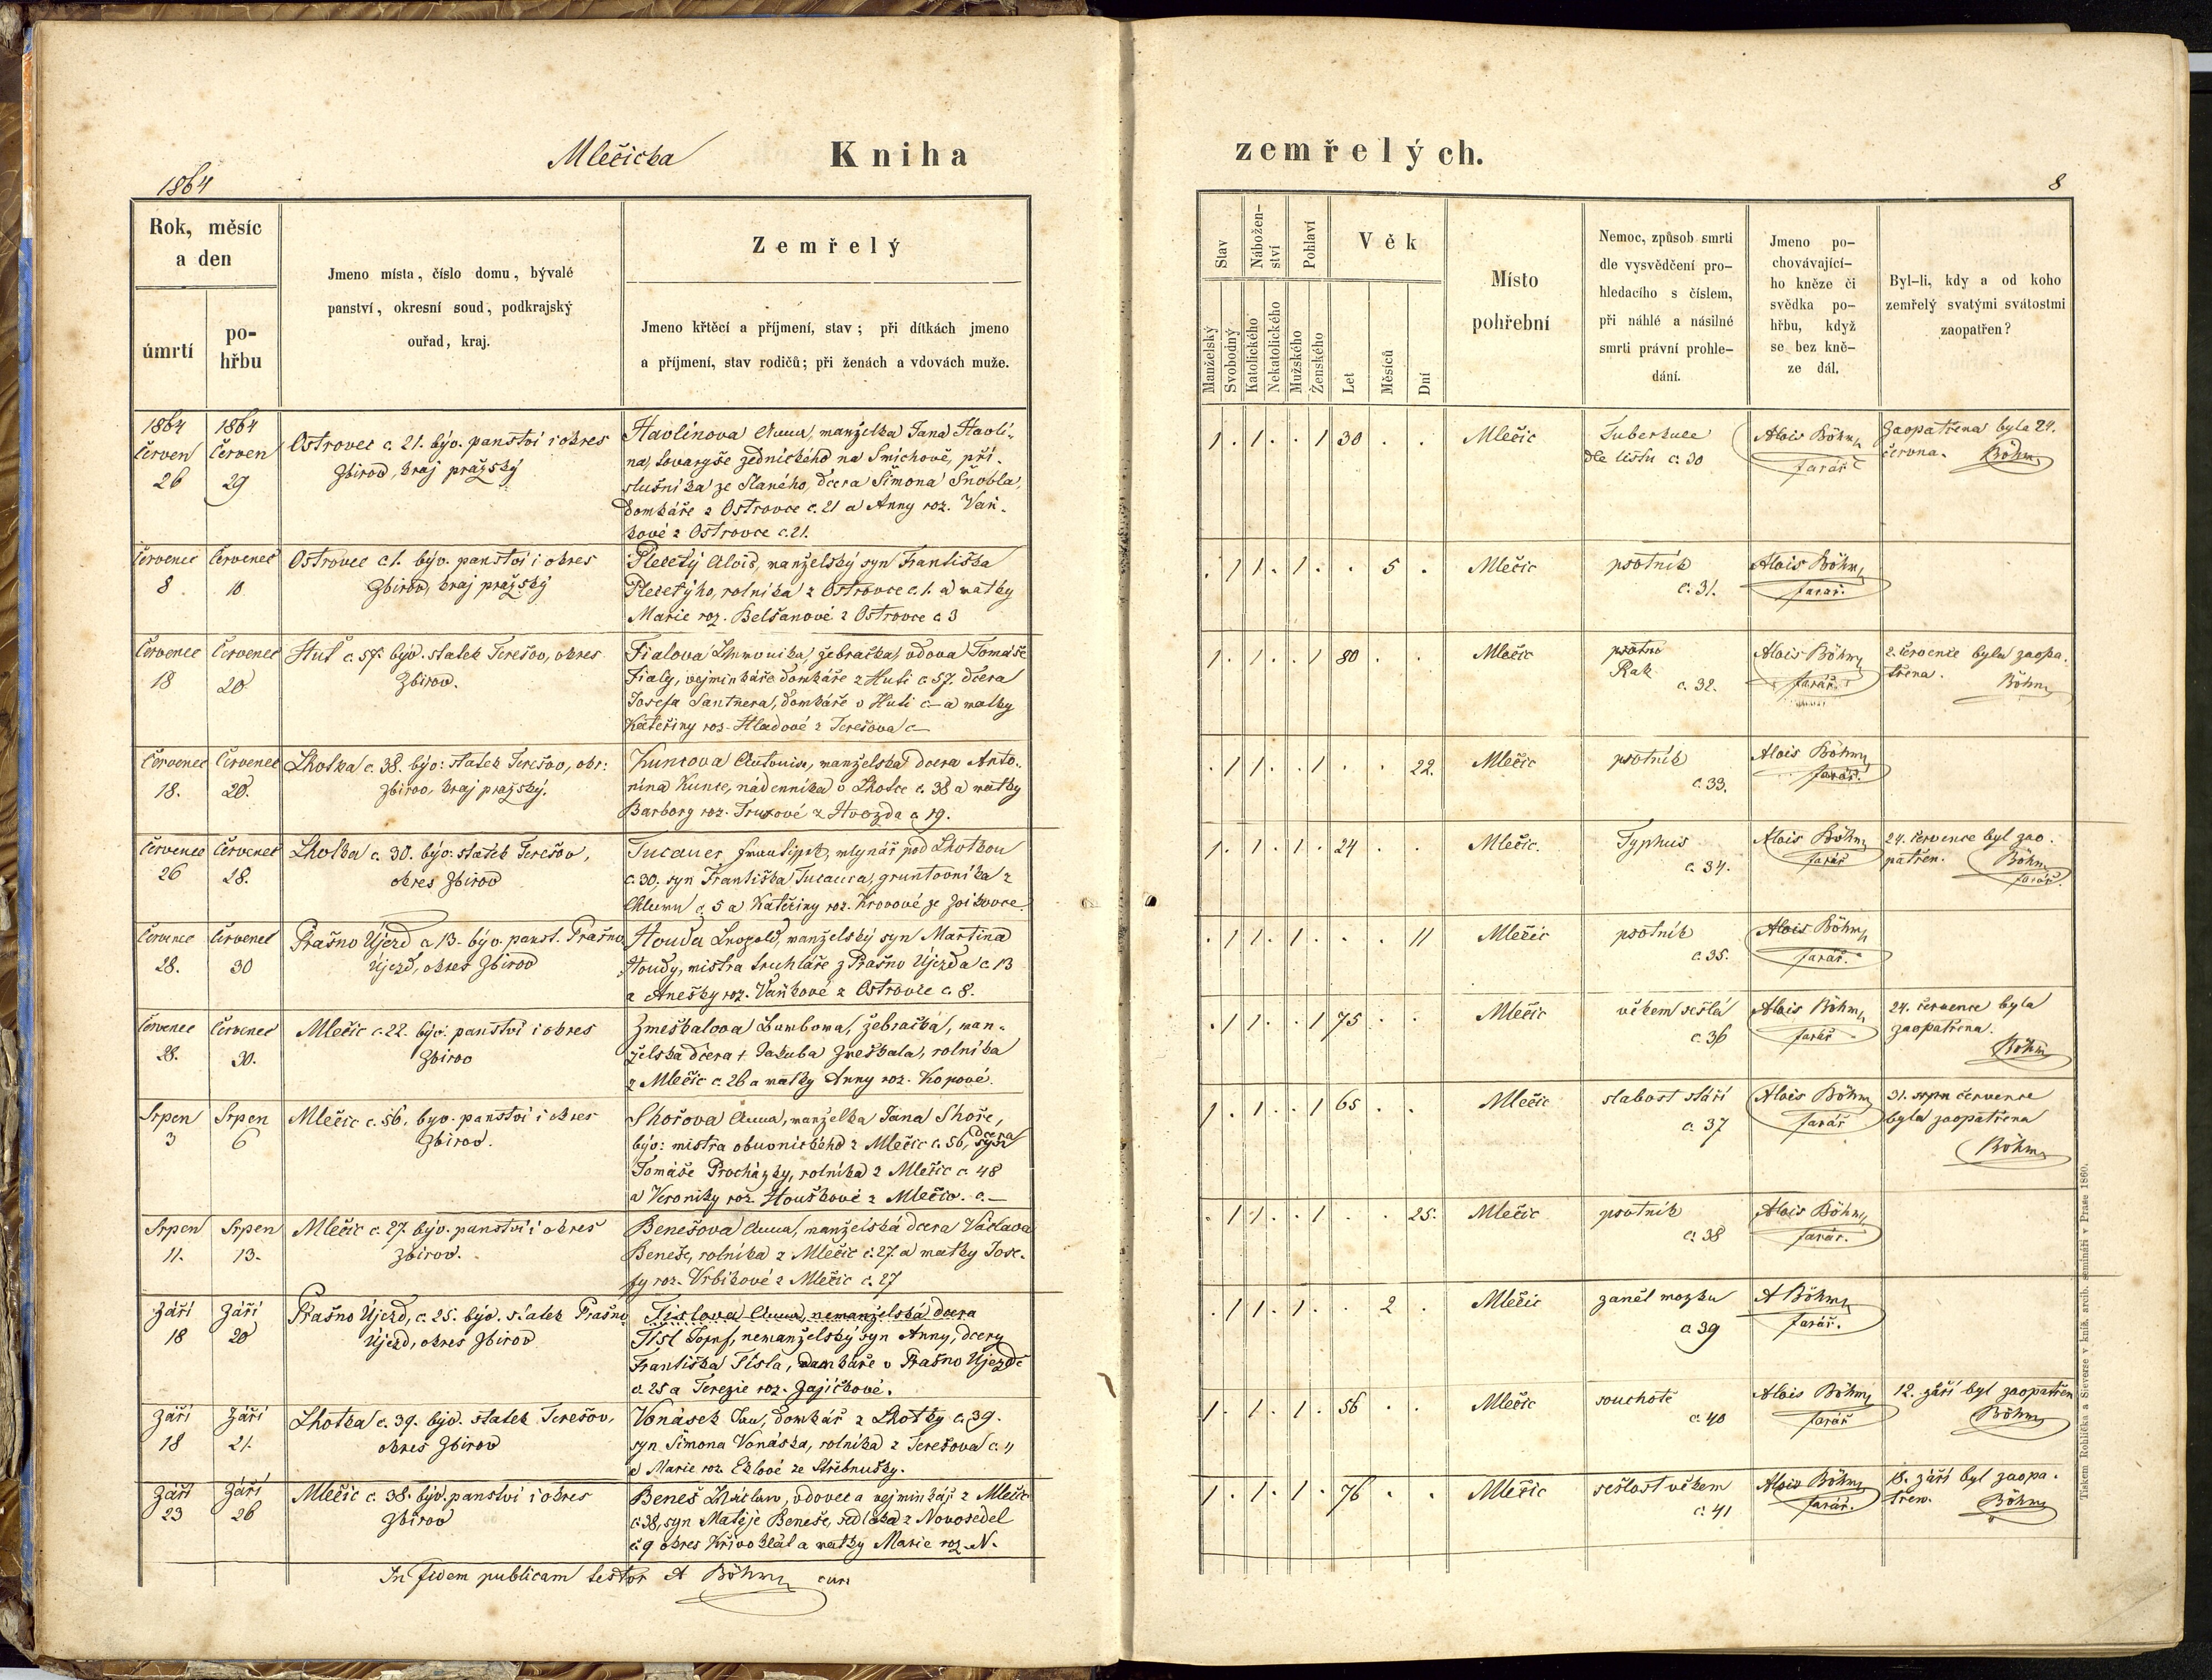 Mlečicka
Kniha
zemřelých.
1864
8
Rok, měsíc
a den
úmrtí
po-
hřbu
Jmeno místa, číslo domu, bývalé
panství, okresní soud, podkrajský
ouřad, kraj.
Zemřelý
Jmeno křtěcí a příjmení, stav; při dítkách jmeno
a příjmení, stav rodičů; při ženách a vdovách muže.
Stav
Manželský
Svobodný
Nábožen-
ství
Katolického
Nekatolického
Pohlaví
Mužského
Ženského
Věk
Let
Měsíců
Dní
Místo
pohřební
Nemoc, způsob smrti
dle vysvědčení pro-
hledacího s číslem,
při náhlé a násilné
smrti právní prohle-
dání.
Jmeno po-
chovávající-
ho kněze či
svědka po-
hřbu, když
se bez kně-
ze dál.
Byl-li, kdy a od koho
zemřelý svatými svátostmi
zaopatřen?
1864 1864
Červen Červen
26 29
Ostrovec c. 21. býv. panství i okres
Zbirov, kraj pražský
Havlínova Anna, manželka Jana Havlí-
na, tovaryše zednického na Smíchově, pří-
slušníka ze Slaného, dcera Šimona Šnobla,
domkáře z Ostrovce č. 21 a Anny roz. Vaň-
kové z Ostrovce č. 21.
1 . 1 . . 1 30 . . Mlečic
Tuberkule
dle listu c. 30
Alois Böhm
farář
Zaopatřena byla 24.
června. Böhm
Červenec Červenec
8 10
Ostrovec c 1. býv. panství i okres
Zbirov, kraj pražský
Pletetý Alois, manželský syn Františka
Pletetýho, rolníka z Ostrovce c. 1. a matky
Marie roz. Belšanové z Ostrovce c 3
. 1 1 . 1 . . 5 . Mlečic
psotník
c. 31.
Alois Böhm
farář.
Červenec Červenec
18 20
Huť c. 57. býv. statek Terešov, okres
Zbirov.
Fialova žebračka, vdova Tomáše
Fialy, vejminkáře domkáře z Huti c 57. dcera
Josefa Santnera, domkáře v Huti c — a matky
Kateřiny roz. Hladové z Terešova c —
1 . 1 . . 1 80 . . Mlečic
psotní
Rak
c. 32.
Alois Böhm
farář.
2. července byla zaopa-
třena. Böhm
Červenec Červenec
18. 20.
Lhotka c. 38. býv: statek Terešov, okr:
Zbirov, kraj pražský.
Kuncova Antonie, manželská dcera Anto-
nína Kunce, nádenníka v Lhotce c. 38 a matky
Barbory roz. Truxové z Hvozda c 19.
. 1 1 . . 1 . . 22. Mlečic
psotník
c. 33.
Alois Böhm
farář.
Červenec Červenec
26 28.
Lhotka c. 30. býv: statek Terešov,
okres Zbirov
Tucauer František, mlynář pod Lhotkou
c. 30. syn Františka Tucaura, gruntovníka z
Chlumu c 5 a Kateřiny roz. Krovové ze Zvikovce
1 . 1 . 1 . 24 . . Mlečic.
Typhus
c. 34.
Alois Böhm
farář
24. července byl zao-
patřen. Böhm
farář.
Červenec Červenec
28. 30
Prašno Újezd c 13. býv. panst. Prašno
Újezd, okres Zbirov
Houda Leopold, manželský syn Martina
Houdy, mistra truhláře z Prašno Újezda c. 13
a Anežky roz. Vaňkové z Ostrovce c. 8.
. 1 1 . 1 . . . 11 Mlečic
psotník
c 35.
Alois Böhm
farář.
Červenec Červenec
28. 30.
Mlečic c. 22. býv: panství i okres
Zbirov
Zmeškalova žebračka, man-
želská dcera † Jakuba Zmeškala, rolníka
z Mlečic c. 26 a matky Anny roz. Kopové.
. 1 1 . . 1 75 . . Mlečic
věkem sešlá
c 36
Alois Böhm
farář
24. července byla
zaopatřena.
Böhm
Srpen Srpen
3 6
Mlečic c. 56. byv. panství i okres
Zbirov.
Shořova Anna, manželka Jana Shoře,
býv: mistra obuvnického z Mlečic c. 56, syn dcera
Tomáše Procházky, rolníka z Mlečic c. 48
a Veroniky roz. Houškové z Mlečic. c. —
1 . 1 . . 1 65 . . Mlečic
slabost stáří
c. 37
Alois Böhm
farář
31. srpn července
byla zaopatřena
Böhm
Srpen Srpen
11. 13.
Mlečic c. 27. býv. panství i okres
Zbirov.
Benešova Anna, manželská dcera Václava
Beneše, rolníka z Mlečic č. 27. a matky Jose-
fy roz. Vrbíkové z Mlečic c. 27
. 1 1 . . 1 . . 25. Mlečic
psotník
c. 38
Alois Böhm
farář.
Září Září
18 20
Prašno Újezd, c. 25. býv. statek Prašno
Újezd, okres Zbirov
Tislova Anna, nemanželská dcera
Tisl Josef, nemanželský syn Anny, dcery
Františka Tisla, domkáře v Prašno Újezdě
c. 25 a Terezie roz. Zajíčkové.
. 1 1 . 1 . . 2 . Mlečic
zanět mozku
c 39
A Böhm
farář.
Září Září
18 21.
Lhotka c. 39. býv. statek Terešov,
okres Zbirov
Vonásek Jan, domkář z Lhotky c. 39.
syn Šimona Vonáska, rolníka z Terešova c. 11
a Marie roz. Eklové ze Střebnušky.
1 . 1 . 1 . 56 . . Mlečic
souchotě
c. 40
Alois Böhm
farář
12. září byl zaopatřen
Böhm
Září Září
23 26
Mlečic c. 38. býv. panství i okres
Zbirov
Beneš vdovec a vejminkář z Mlečic
c. 38, syn Matěje Beneše, sedláka z Novosedel
č. 9 okres Křivoklát a matky Marie roz. N.
1 . 1 . 1 . 76 . . Mlečic
sešlost věkem
c. 41
Alois Böhm
farář.
18. září byl zaopa-
třen. Böhm
In fidem publicam testor A Böhm
Tiskem Rohlíčka a Sieverse v kníž. arcib. semináři v Praze 1860.